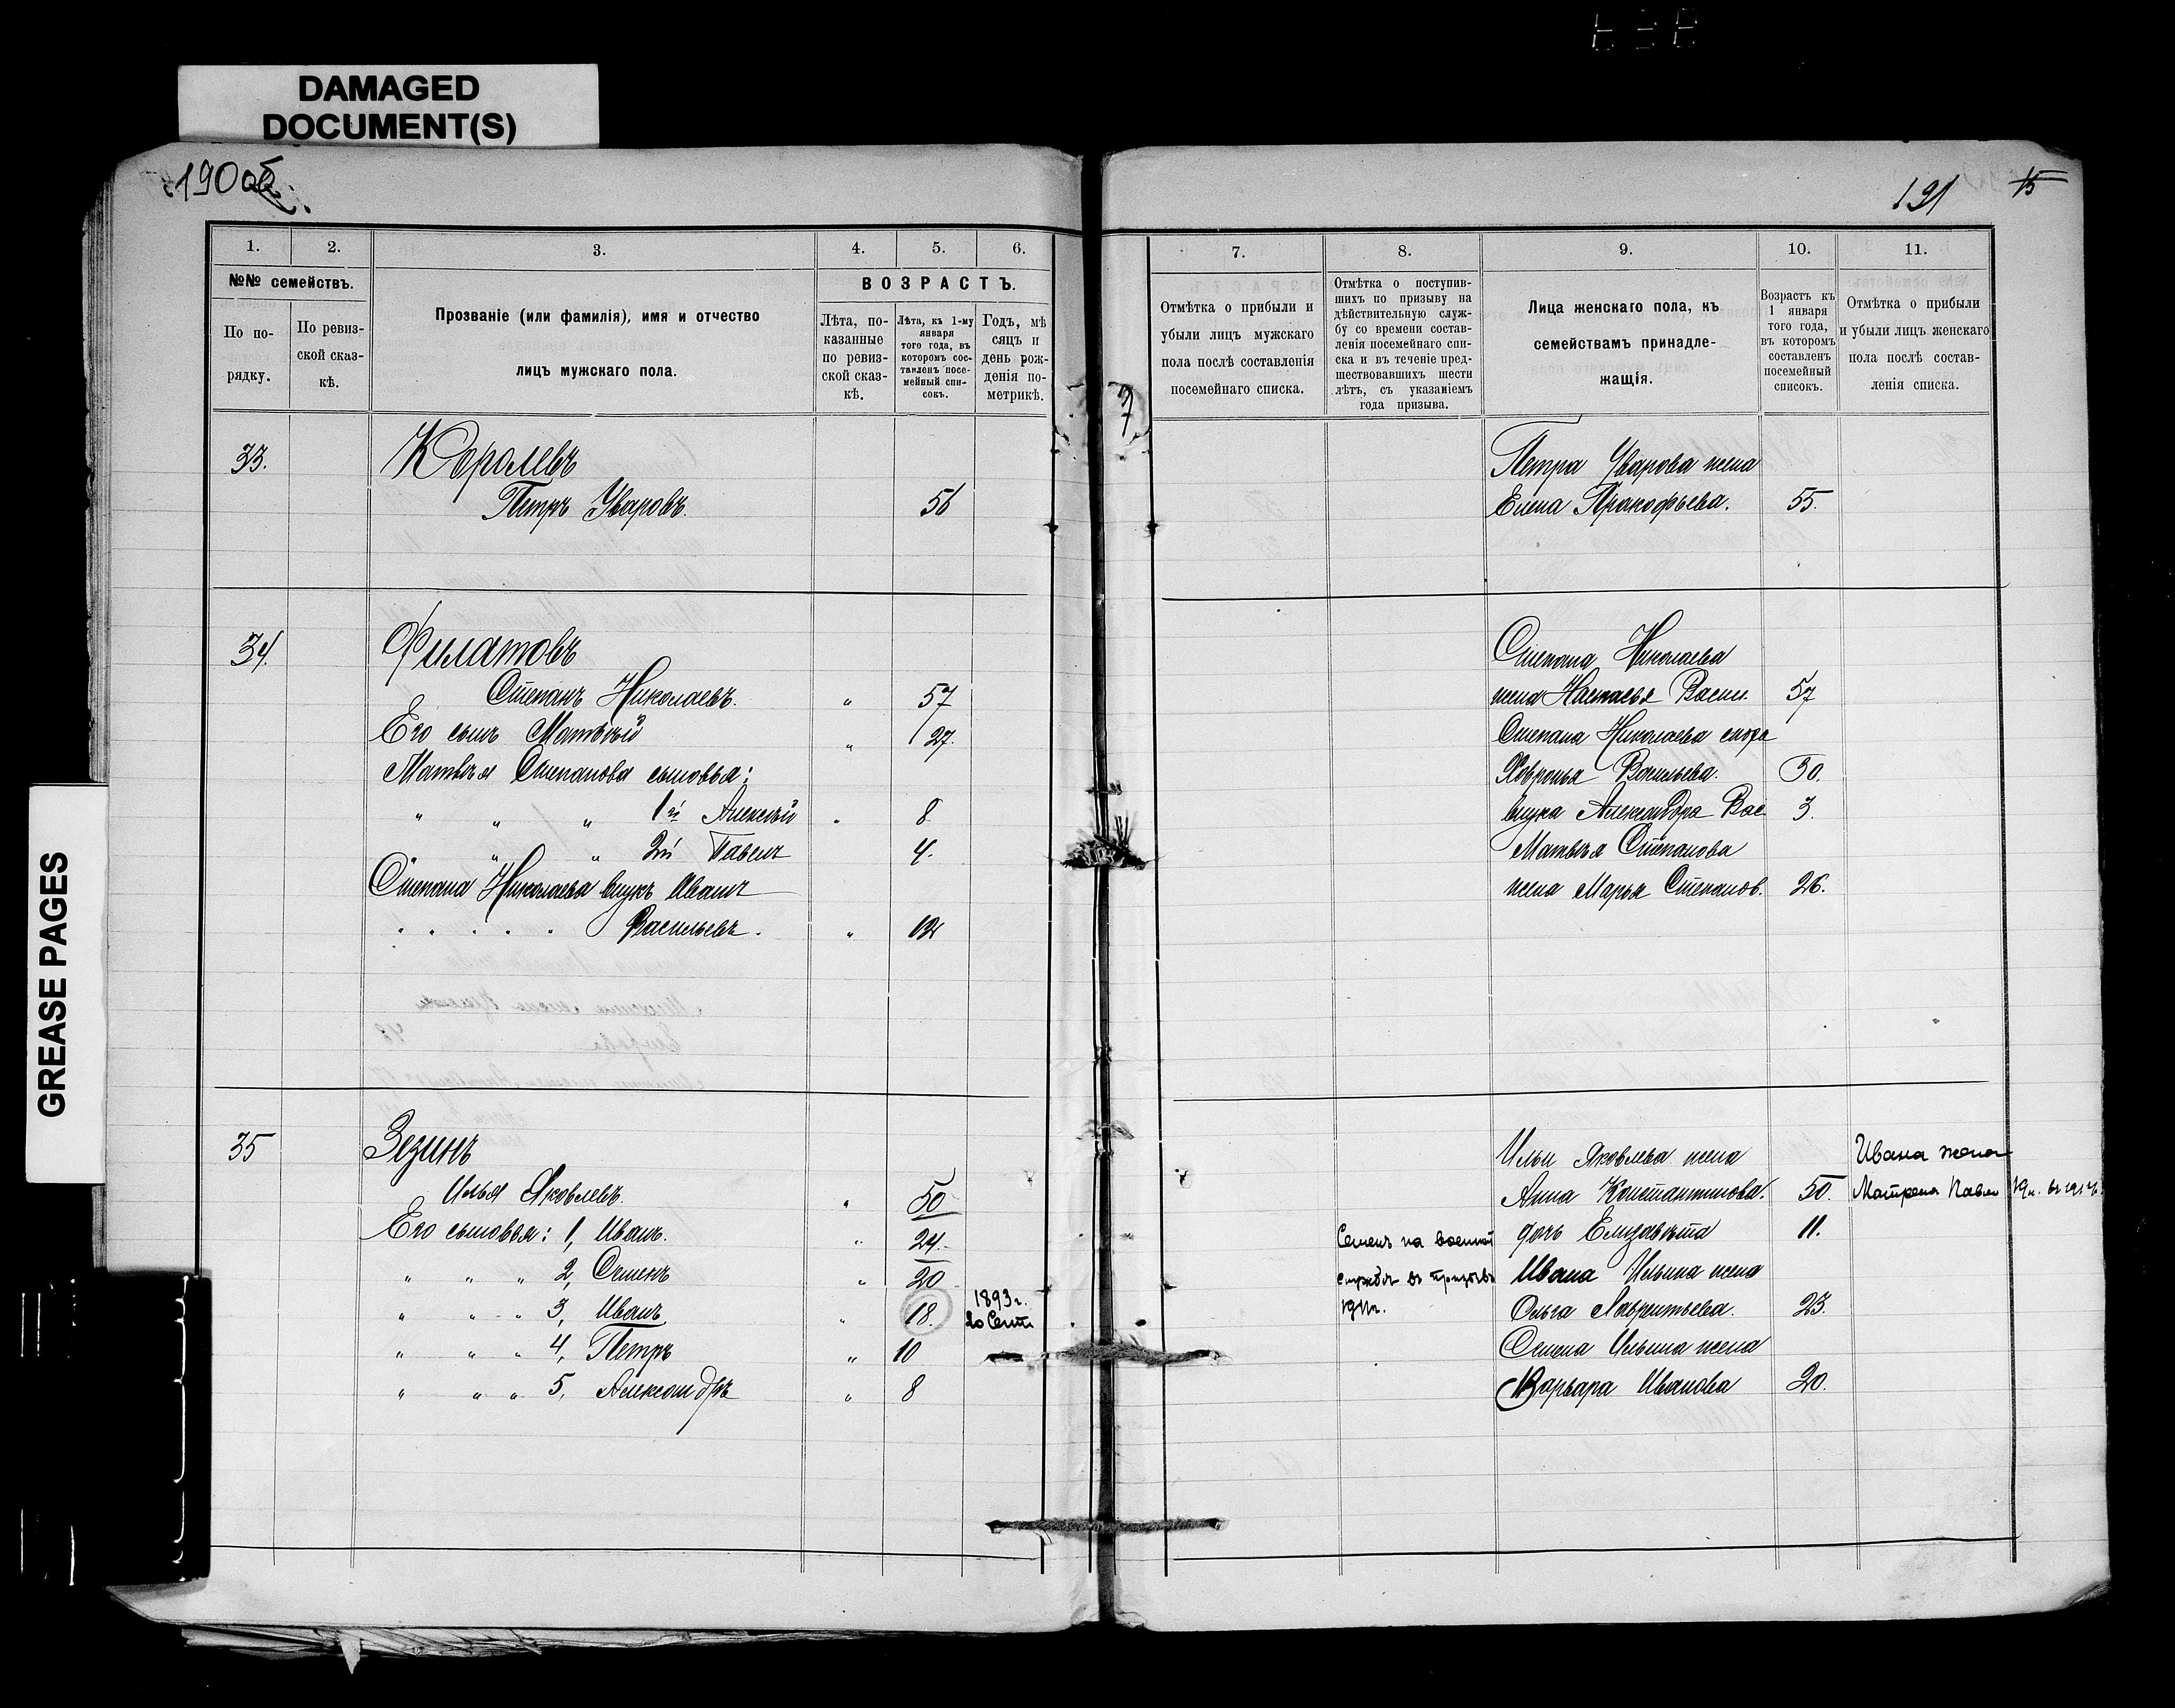 DAMAGED
DOCUMENT(S)
GREASE PAGES
190об.
1.
2.
3.
4.
5.
6.
№№ семействъ.
По по-
рядку.
По ревиз-
ской сказ-
кѣ.
Прозваніе (или фамилія), имя и отчество
лицъ мужскаго пола.
ВОЗРАСТЪ.
Лѣта, по-
казанные
по ревиз-
ской сказ-
кѣ.
Лѣта, къ 1-му
января
того года, въ
которомъ сос-
тавленъ посе-
мейный спи-
сокъ.
Годъ, мѣ
сяцъ и
день рож-
денія по-
метрикѣ.
33.
Королевъ
Петръ Уваровъ. 56
34.
Филатовъ
Степанъ Николаевъ. " 57
Его сынъ Матвѣй " 27.
Матвѣя Степанова сыновья:
" " " 1й Алексѣй " 8
" " 2й Павелъ 4.
Степана Николаева внукъ Иванъ
" " " " " Васильевъ. " 12
35
Зезинъ
Илья Яковлевъ. " 50
Его сыновья: 1, Иванъ. " 24.
" " " 2, Семенъ " 20
" " " 3, Иванъ " 18. 1893г.
20 Сент.
" " " 4, Петръ " 10
" " " 5, Александръ " 8
191
15
7
7.
8.
9.
10.
11.
Отмѣтка о прибыли и
убыли лицъ мужскаго
пола послѣ составленія
посемейнаго списка.
Отмѣтка о поступив-
шихъ по призыву на
дѣйствительную служ-
бу со времени состав-
ленія посемейнаго спи-
ска и въ теченіе пред-
шествовавшихъ шести
лѣтъ, съ указаніемъ
года призыва.
Лица женскаго пола, къ
семействамъ принадле-
жащія.
Возрастъ къ
1 января
того года,
въ которомъ
составленъ
посемейный
списокъ.
Отмѣтка о прибыли
и убыли лицъ женскаго
пола послѣ состав-
ленія списка.
Петра Уварова жена
Елена Прокофьева. 55.
Степана Николаева
жена Настасья Васил. 57
Степана Николаева сноха
Хавронья Васильева. 30.
внука Александра Вас 3.
Матвѣя Степанова
жена Марья Степанов. 26.
Ильи Яковлева жена
Анна Константинова. 50.
дочь Елизавѣта 11.
Ивана Ильина жена
Ольга Лаврентьева. 23.
Семена Ильина жена
Варвара Иванова 20.
Семенъ на военной
службѣ въ призывъ
1911г.
Ивана жена
Матрена Павло